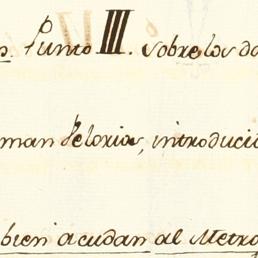 Punto III. sobre los do
man Feloxias, introduci
bien acudan al Metro